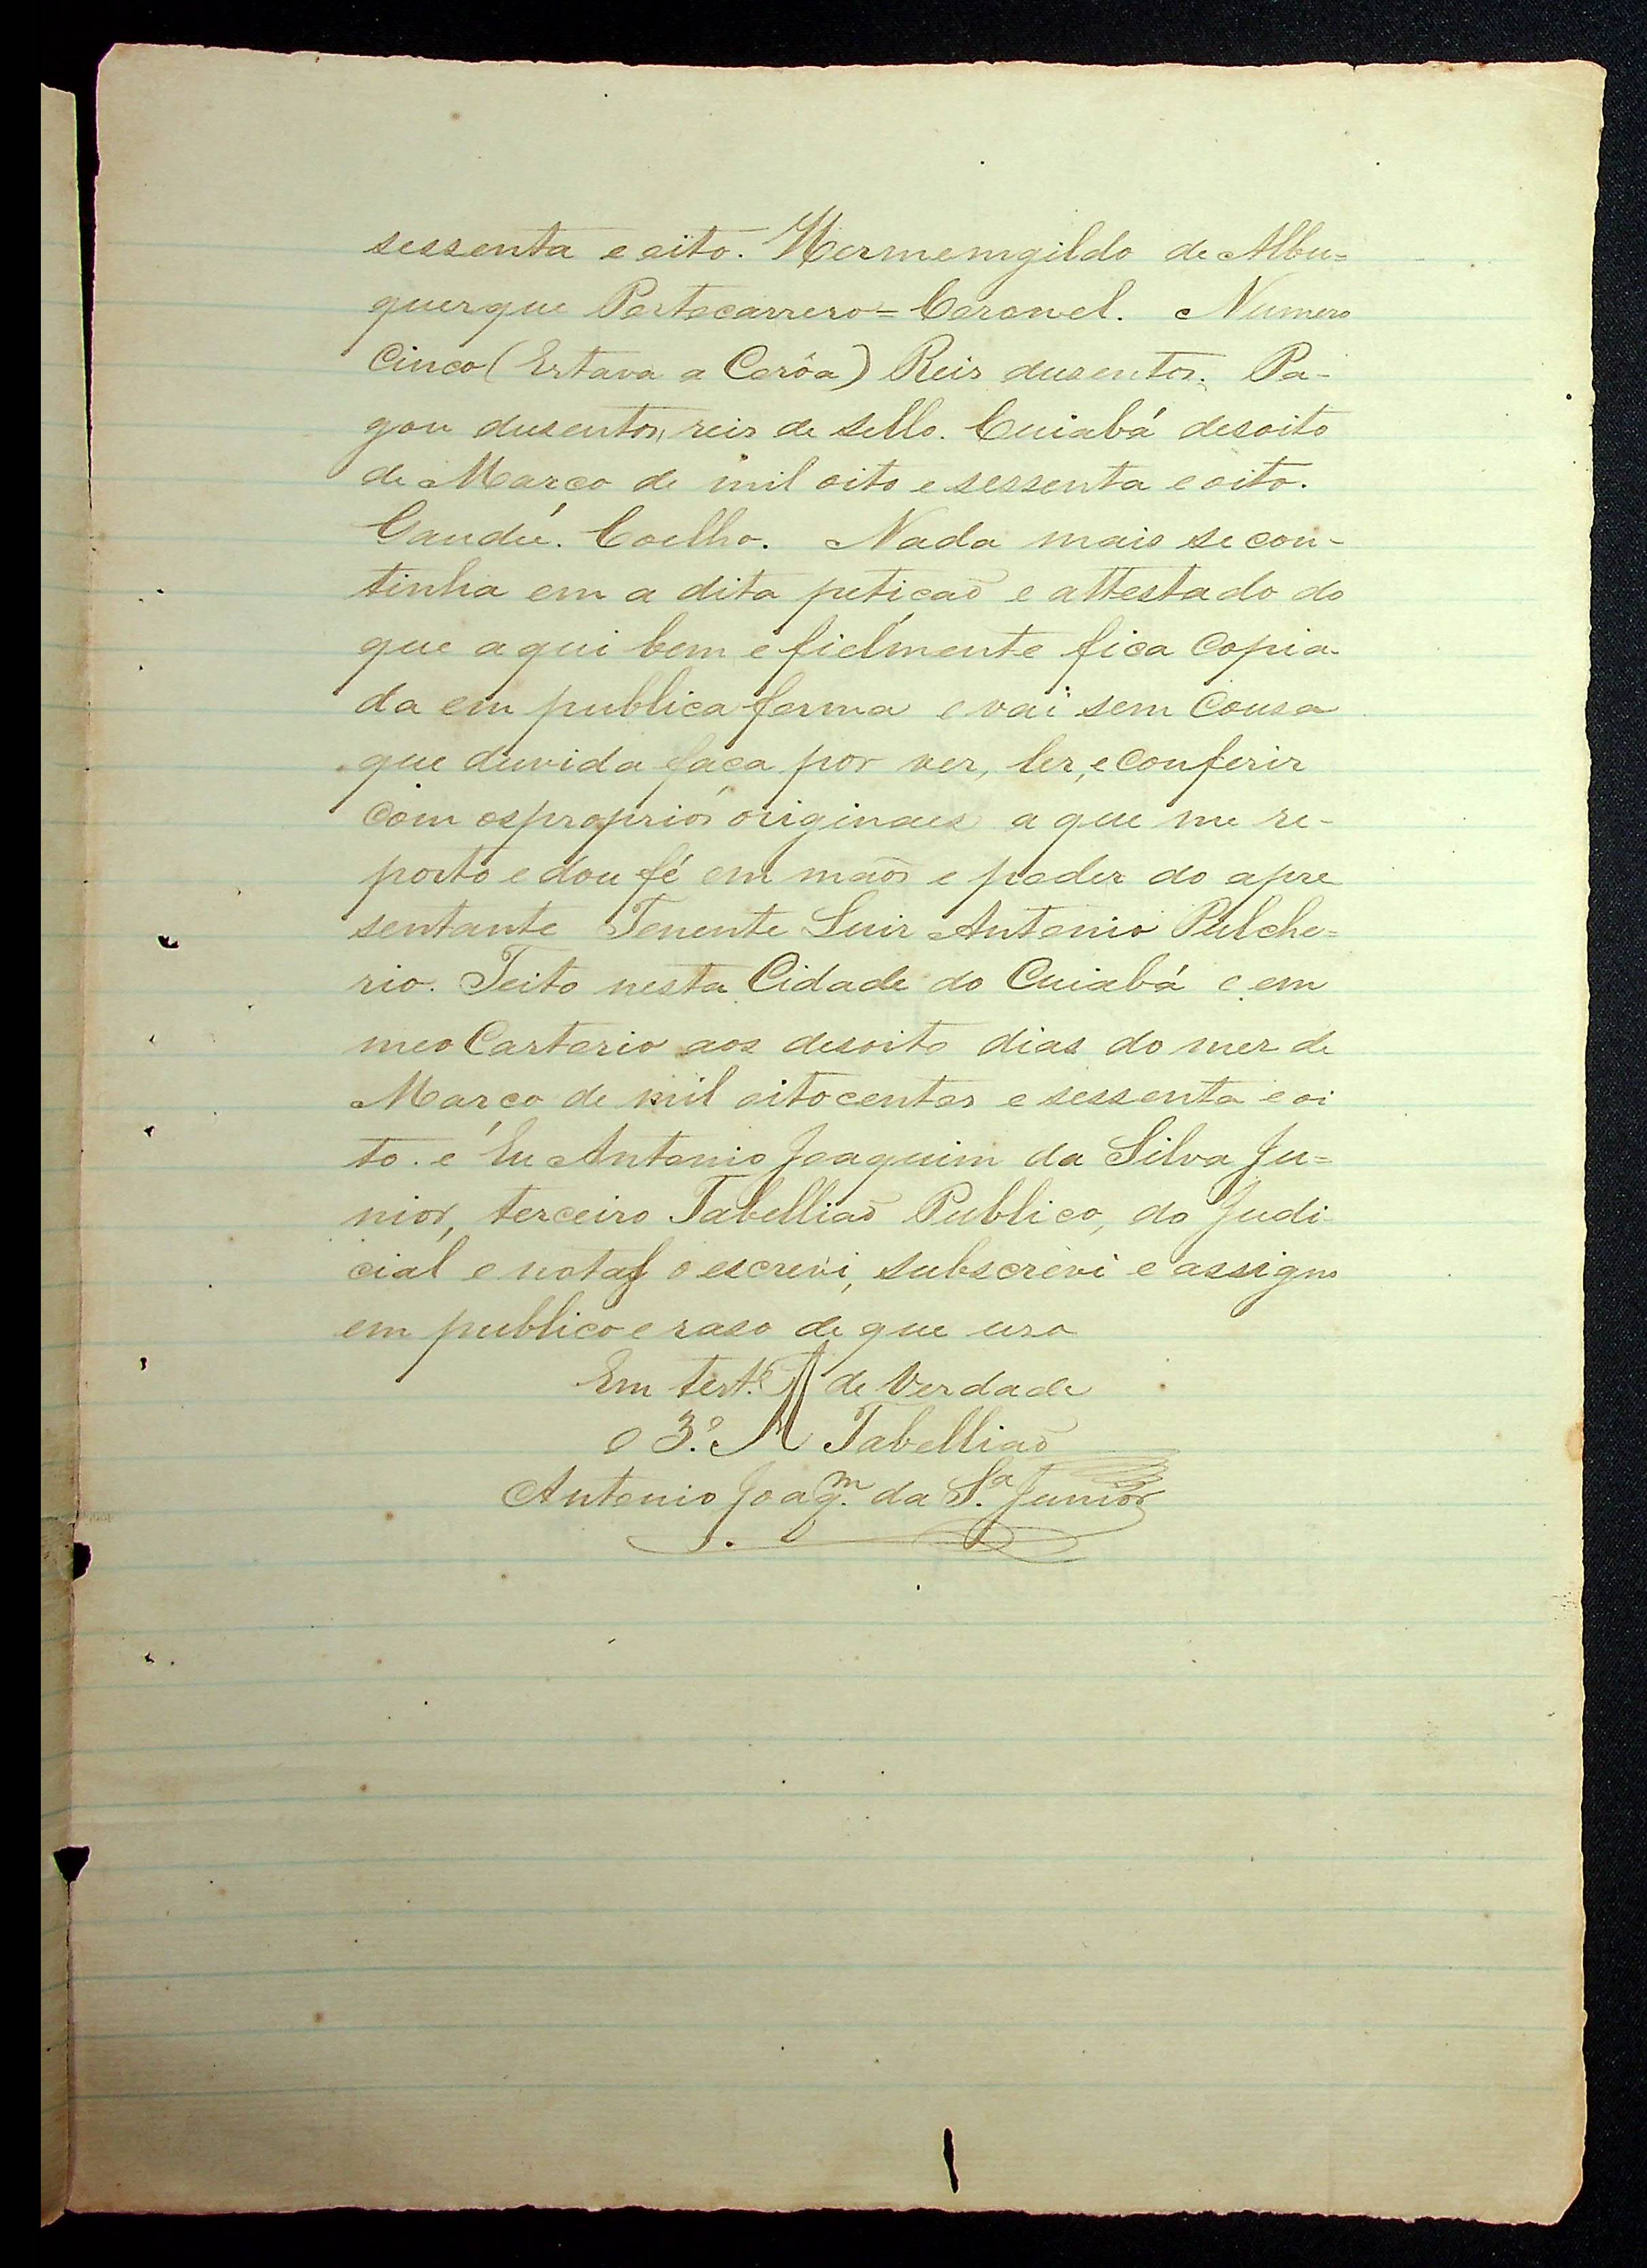 sessenta e oito. Hermemgildo de Albu=
querque Portocarrero = Coronel. Numero
Cinco (Estava a Corôa) Reis dusentos. Pa-
gou dusentos reis de sello. Cuiabá desoito
de Março de mil oito e sessenta e oito.
Gaudié. Coelho. Nada mais se con-
tinha em a dita petição e attestado do
que aqui bem e fielmente fica copia
da em publica forma e vai sem cousa
que duvida faça por ver, ler, e conferir
com os proprios originaes a que me re-
porto e dou fé em mãos e poder do apre
sentante Tenente Luiz Antonio Pulche=
rio. Feito nesta Cidade do Cuiabá e em
meo Cartorio aos desoito dias do mez de
Março de mil oitocentos e sessenta e oi
to. e Eu Antonio Joaquim da Silva Ju=
nior, terceiro Tabellião Publico, do Judi
cial e notas o escrevi, subscrevi e assigno
em publico e raso de que uso
Em test.º de Verdade
O 3.º Tabellião
Antonio Joaq.m da S.a Junior